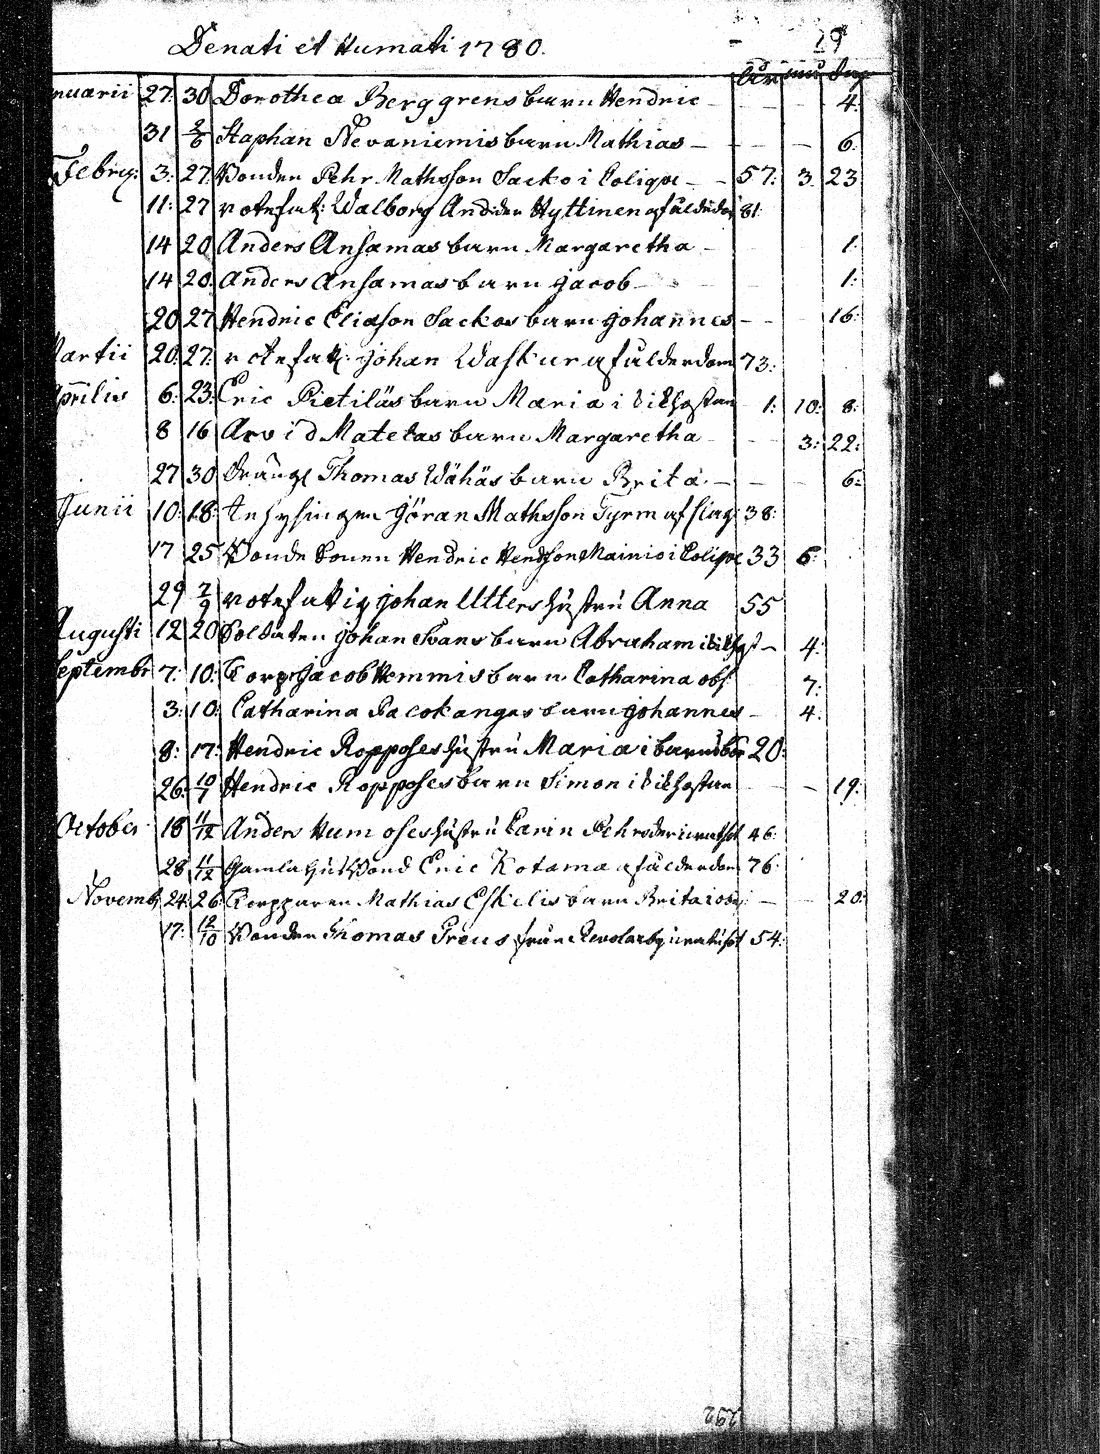 Denati et Humati 1780. 29
åhr mån dag
nuarii 27: 30 Dorothea Berggrens barn Hendric - - - 4:
31 2/6 Staphan Nevaniemis barn Mathias - - - 6:
Febry: 3: 27: Bonden Pehr Mathsson Sacko i Colique - - 57: 3: 23
11: 27 rotefatt: Walborg Hyttinen af ålderdom 81:
14 20 Anders Ansamas barn Margaretha - 1:
14 20: Anders Ansamas barn Jacob - 1:
20 27 Hendric Eliasson Sackos barn Johannes - - - 16:
Martii 20: 27: rotefatt: Johan Waskur af ålderdom 73:
Aprilis 6: 23: Eric Pietiläs barn Maria i kikhostan 1: 10: 8:
8 16 Arvid Matelas barn Margaretha - - 3: 22:
27 30 dräng Thomas Wähäs barn Brita - - - 6:
Junii 10: 18: Inhysingen Göran Mathsson Tyrm af slag 38:
17 25 Bonde Sonen Hendric Hendsson Mainio i Colique 33 6:
29 2/9 rotefattig Johan Utters hustru Anna 55
Augusti 12 20 Soldaten Johan Svans barn Abraham i kikhost - 4:
Septembr 7: 10: Corp: Jacob Hemmis barn Catharina obs: 7:
3: 10: Catharina Pacokangas barn Johannes - 4:
8: 17: Hendric Ropposes hustru Maria i barnsbör 20:
26: 10/7 Hendric Ropposes barn Simon i kikhostan - - - 19:
October 18 11/12 Anders Humoses hustru Carin Pehrsdoter 46:
28 11/12 Gamla Bond Eric Kotama af ålderdom 76:
Novemb: 24: 26: Corpparen Mathias Eskelis barn Brita - - 20:
17: 12/10 Bonden Thomas Preus från Revolax by 54:
292